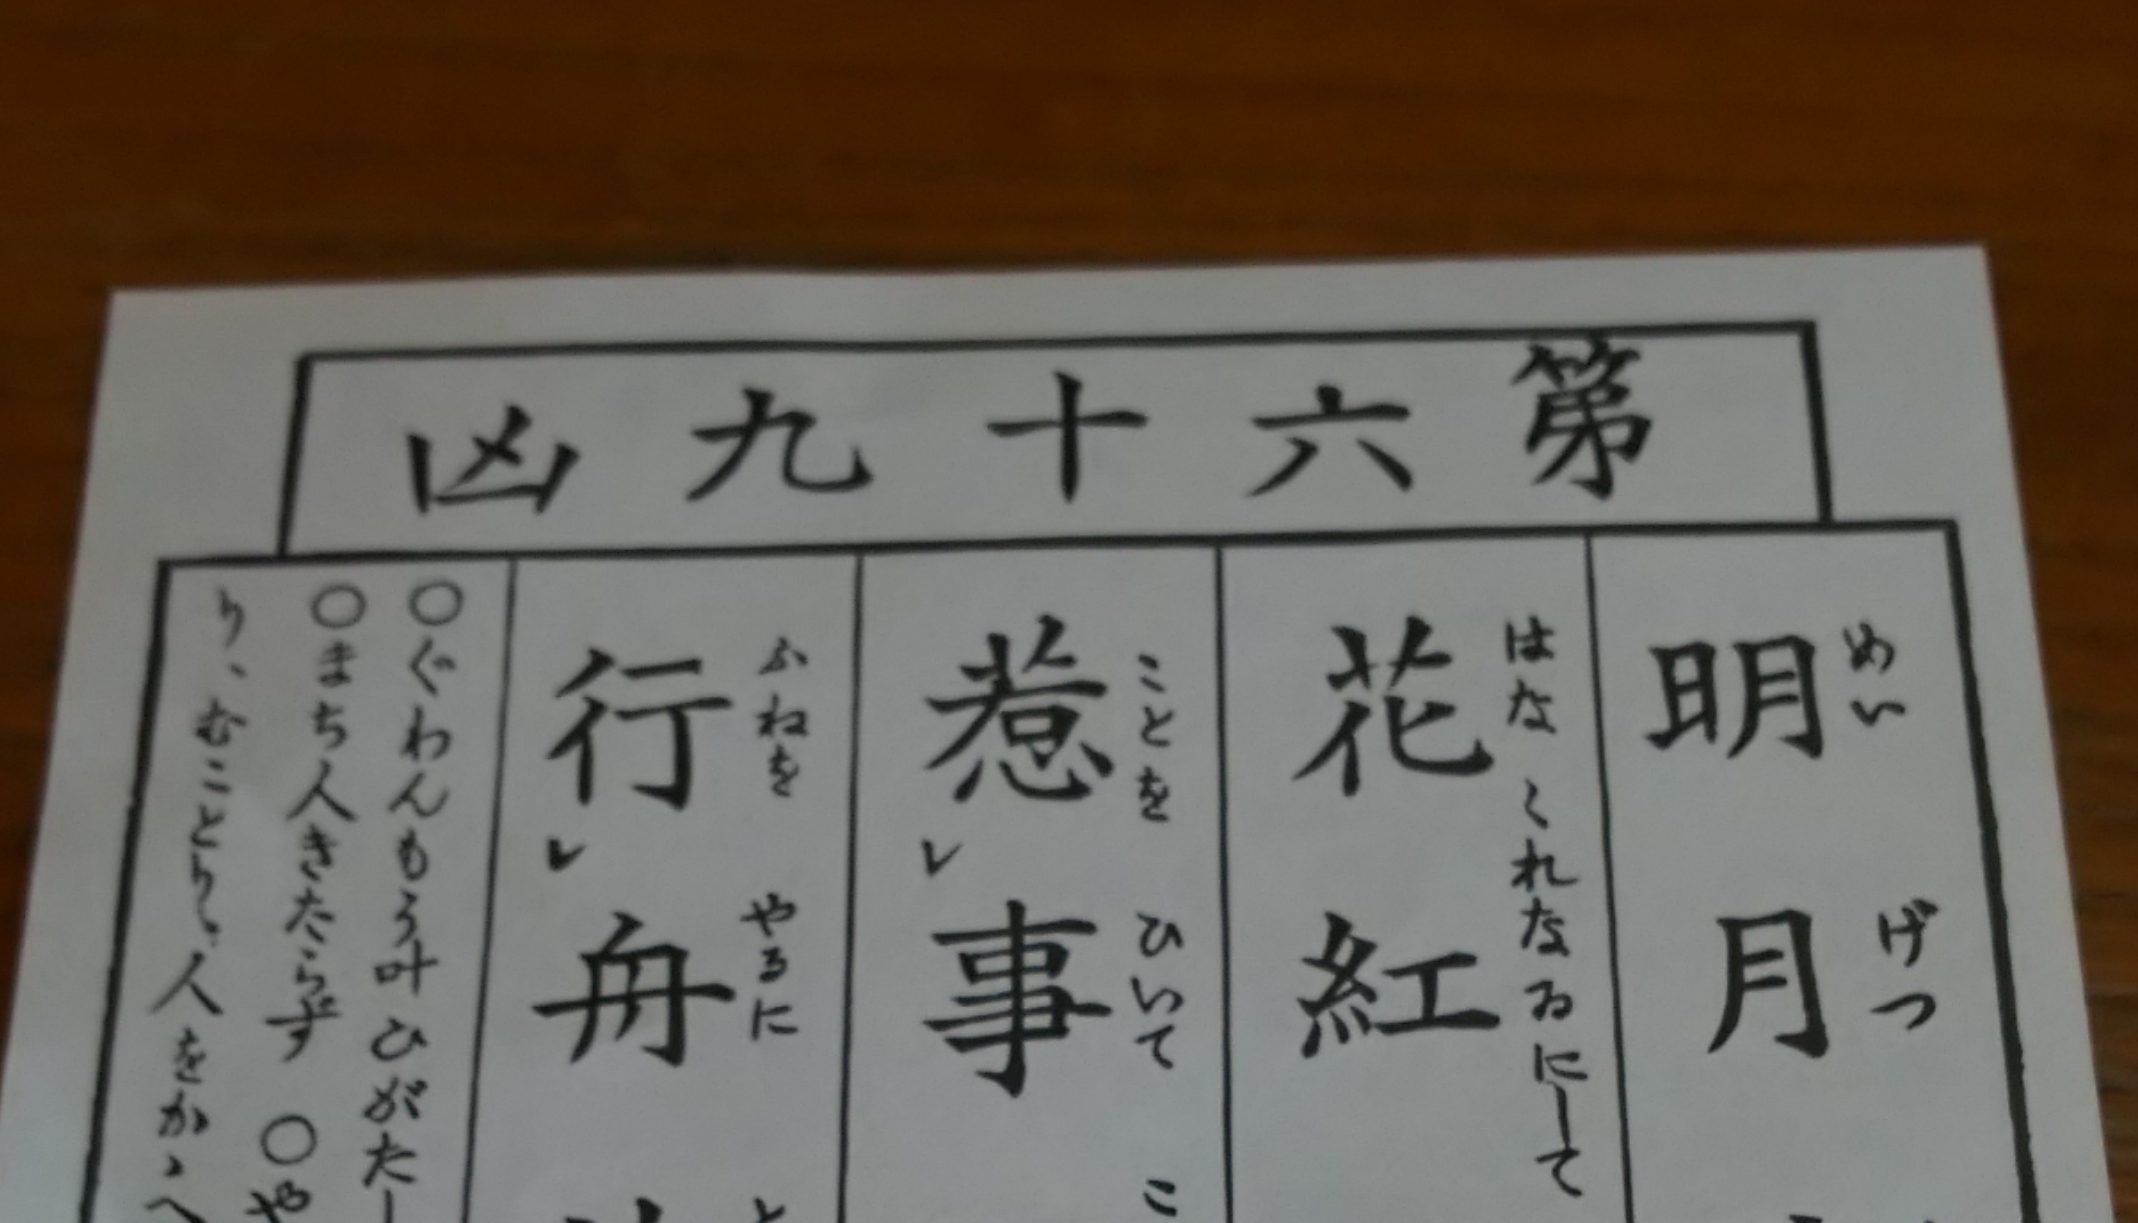 第六十九凶
めいげつ
明月
はなくれなゐにして
花紅
ことをひいてこ
惹レ事
ふねをやるにと
行レ舟
○ぐわんもう叶ひがたし
○まち人きたらず ○や
り、むことり、人をかゝへ